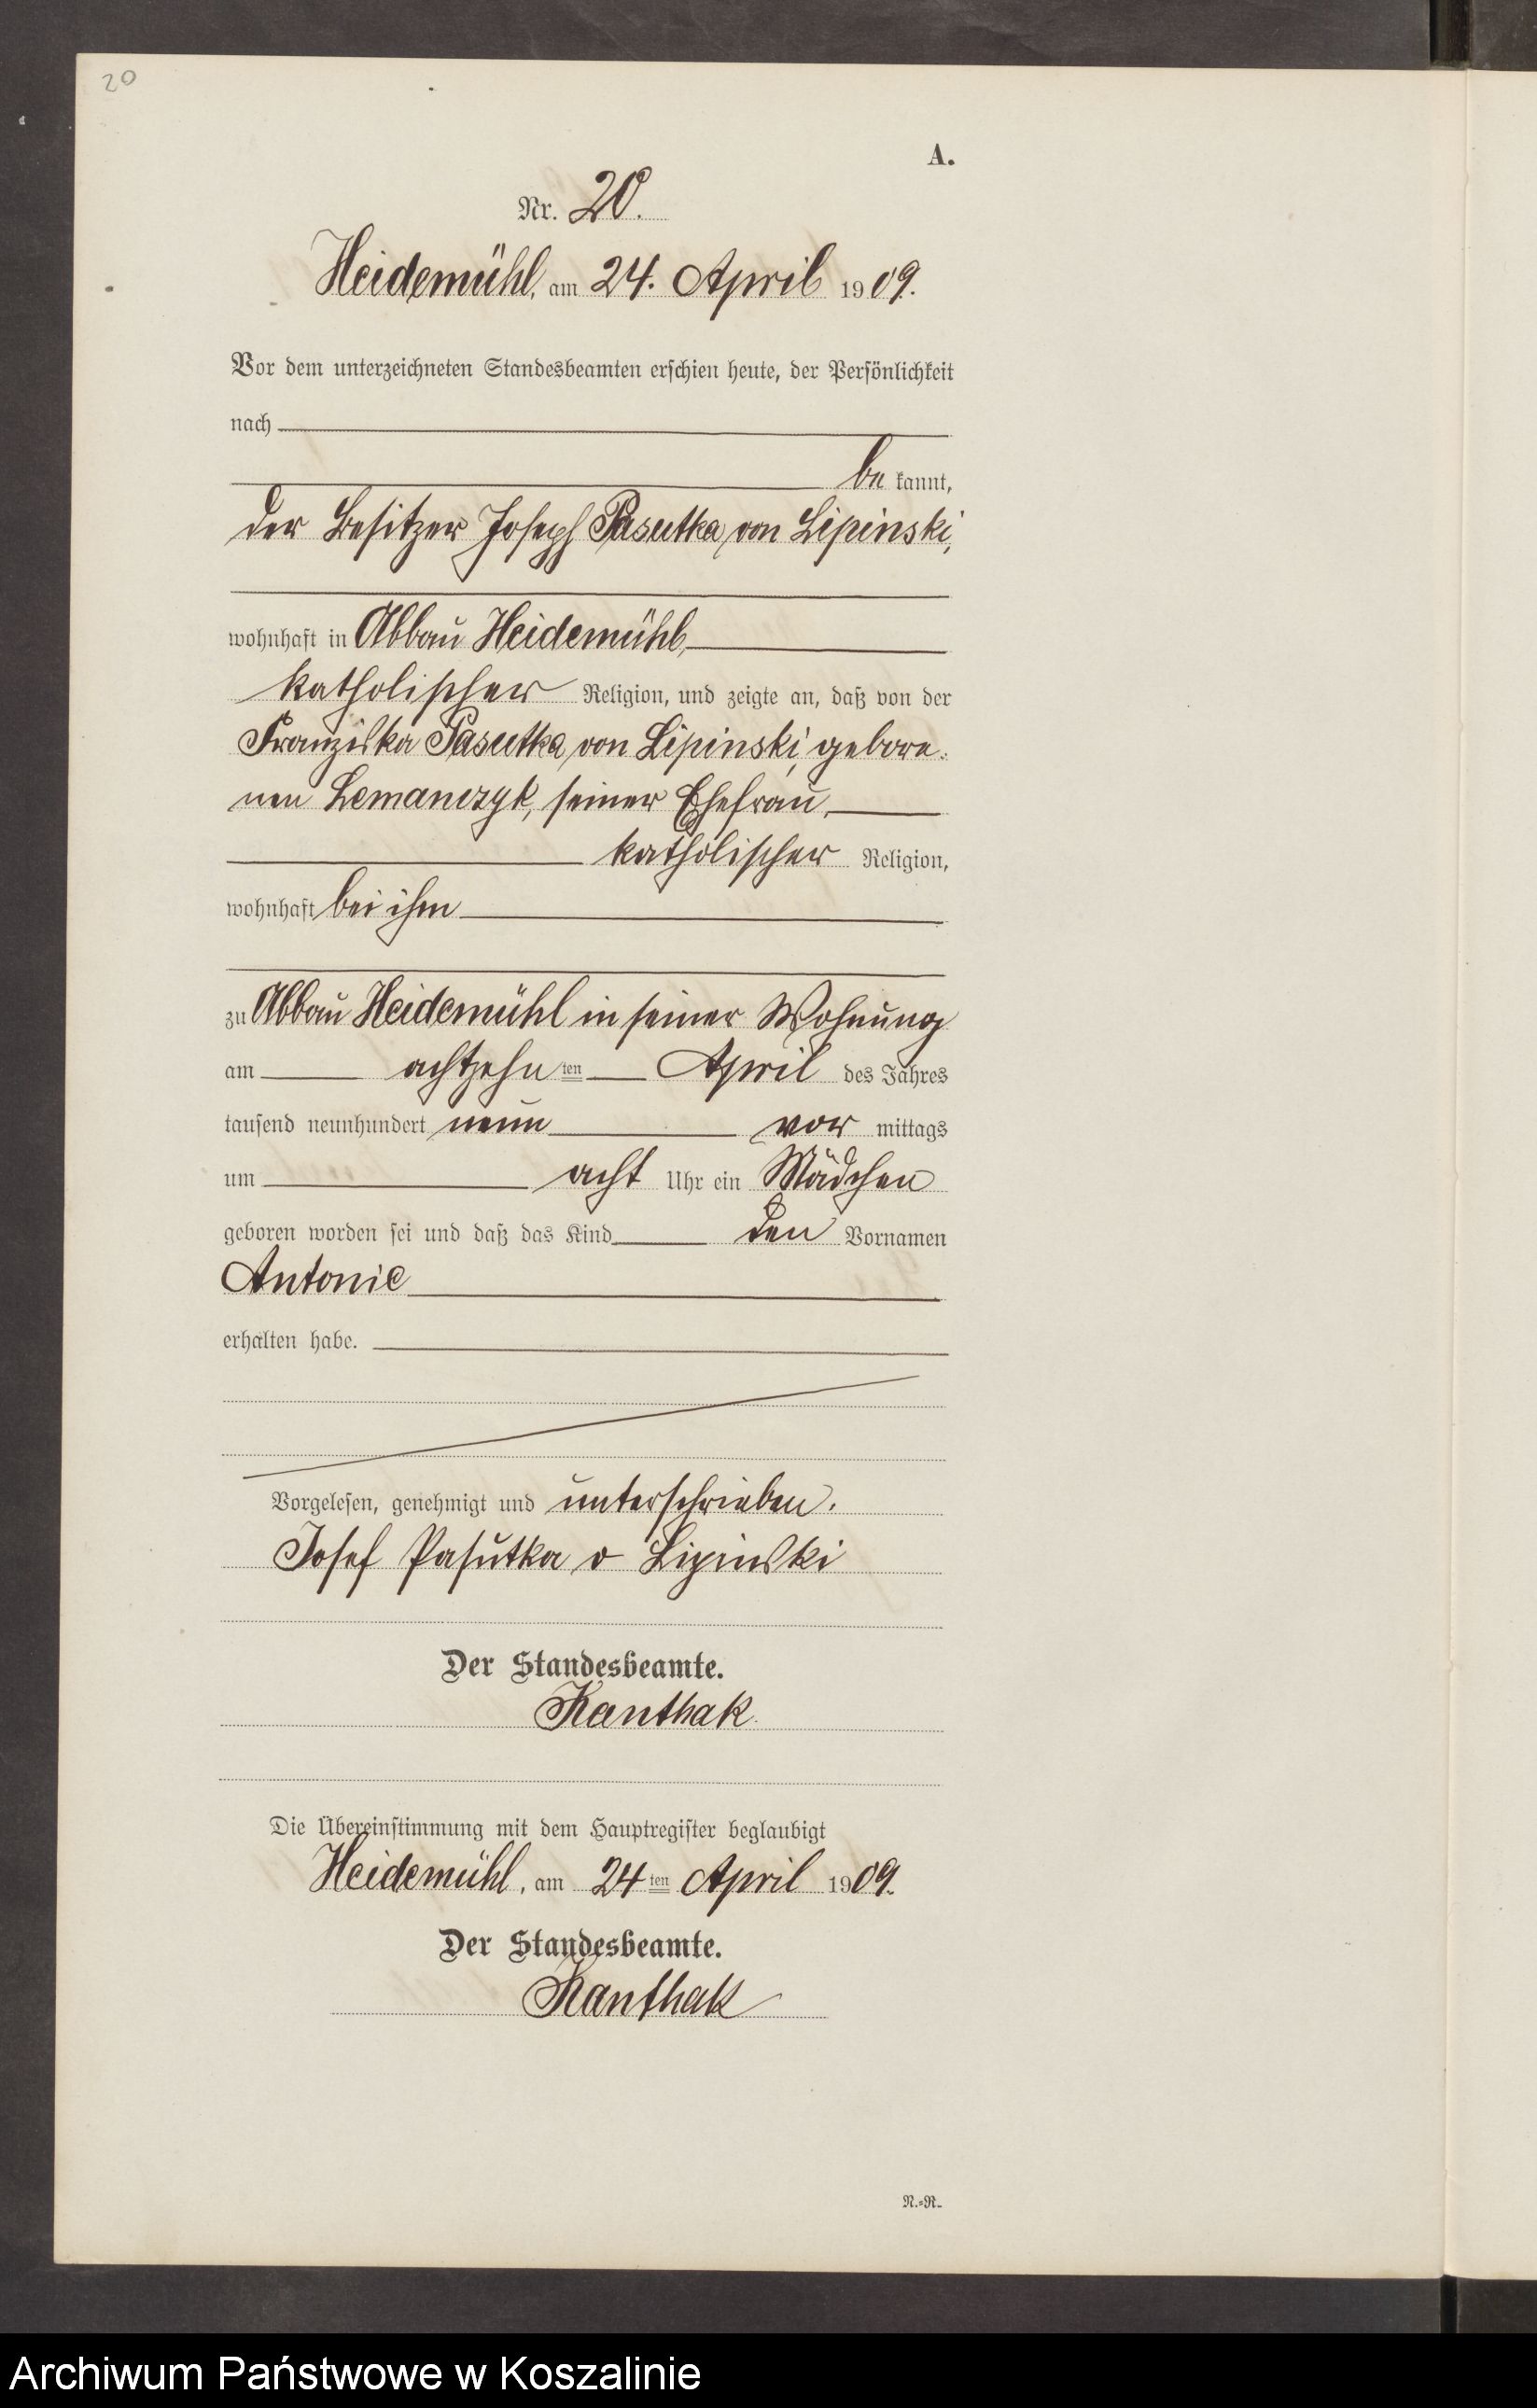 20
A.
Nr. 20.
Heidemühl, am 24. April 1909.
Vor dem unterzeichneten Standesbeamten erschien heute, der Persönlichkeit
nach
be kannt,
der Besitzer Joseph Pasutka von Lipinski,
wohnhaft in Abbau Heidemühl,
katholischer Religion, und zeigte an, daß von der
Franziska Pasutka von Lipinski, gebore-
nen Lemanczyk, seiner Ehefrau,
katholischer Religion,
wohnhaft bei ihm
zu Abbau Heidemühl in seiner Wohnung
am achtzehn ten April des Jahres
tausend neunhundert neun vor mittags
um acht Uhr ein Mädchen
geboren worden sei und daß das Kind den Vornamen
Antonie
erhalten habe.
Vorgelesen, genehmigt und unterschrieben.
Josef Pasutka v Lipinski
Der Standesbeamte.
Kanthak.
Die Übereinstimmung mit dem Hauptregister beglaubigt
Heidemühl, am 24 ten April 1909.
Der Standesbeamte.
Kanthak
N.=R.
Archiwum Państwowe w Koszalinie